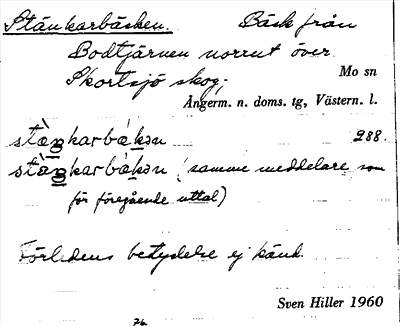 Stänkarbäcken. Bäck från
Bodtjärnen norrut över
Skortsjö skog.
Mo sn
Ångerm. n. doms. tg, Västern. l.
stàŋkarbákən 288.
stàŋkarbákən (samme meddelare som
för föregående uttal)
Förledens betydelse ej känd.
Sven Hiller 1960
76.